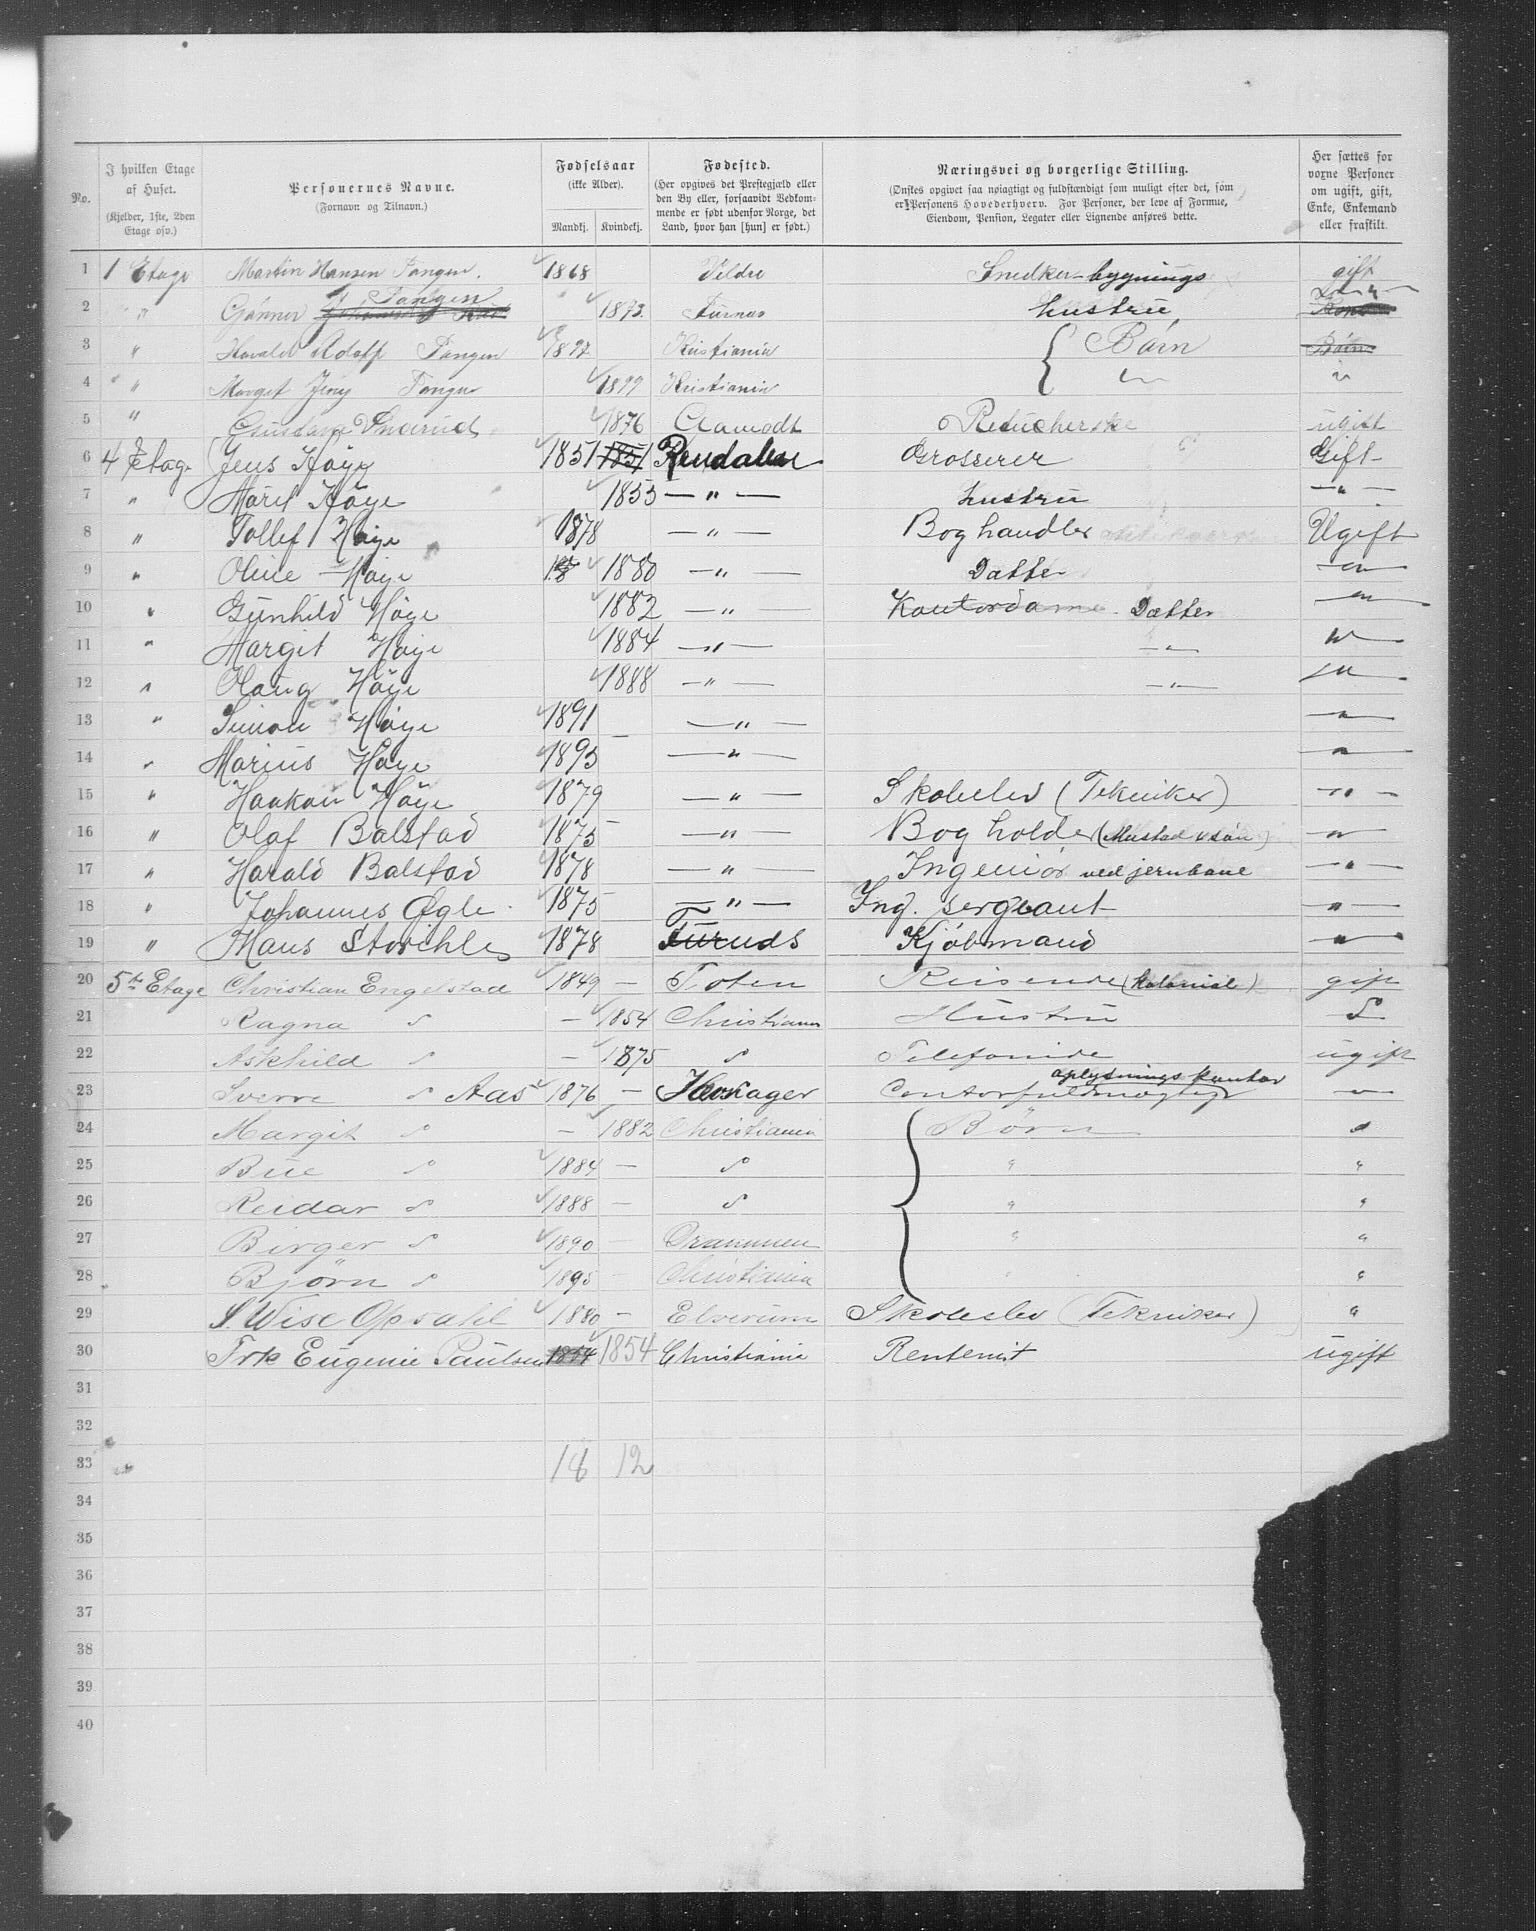 No.
I hvilken Etage af Huset. (Kjelder, 1ste, 2den Etage osv.)
Personernes Navne. (Fornavn og Tilnavn.)
Fødselsaar (ikke Alder). Mandkj. Kvindekj.
Fødested. (Her opgives det Prestegjæld eller den By eller, forsaavidt Vedkommende er født udenfor Norge, det Land, hvor han [hun] er født.)
Næringsvei og borgerlige Stilling. (Ønskes opgivet saa nøiagtigt og fuldstændigt som muligt efter det, som er Personens Hovederhverv. For Personer, der leve af Formue, Eiendom, Pension, Legater eller Lignende anføres dette.
Her sættes for voxne Personer om ugift, gift, Enke, Enkemand eller fraskilt.
1 1 Etage Martin Hansen Tangen. 1868 Veldre Snedker-bygnings gift
2 " Gjønner Tangen 1873 Furnes hustru "
3 " Harald Adolf Tangen 1897 Kristiania { Børn Børn
4 " Margit Jeny Tangen 1899 Kristiania " "
5 " Gustava 1876 Retucherske ugift
6 4 Etage Jens Høye 1851 1851 Rendalen Grosserer Gift
7 " Marit Høye 1855 — " — hustru — " —
8 " Tollef Høye 1878 — " — Boghandler Ugift
9 " Oline Høye 18 1880 — " — Datter — " —
10 " Gunhild Høye 1882 — " — Kontordame. Datter — " —
11 " Margit Høye 1884 — " — — " — "
12 " Olaug Høye 1888 — " — — " — "
13 " Simon Høye 1891 — " — — " —
14 " Marius Høye 1893 — " — — " —
15 " Haakon Høye 1879 — " — Skoleelev (Tekniker) — " —
16 " Olaf Balstad 1875 — " — Bogholder (Mustad & Søn) — " —
17 " Harald Balstad 1878 — " — Ingeniør ved jernbane — " —
18 " Johannes Øgle. 1875 — " — Ing. sergeant — " —
19 " Hans 1878 Kjøbmand — " —
20 5te Etage Christian Engelstad 1849 — Toten Reisende (kolonial) gift
21 Ragna d — 1854 Christiania Hustru d
22 Askhild d — 1875 d Telefonide ugift
23 Sverre d Aas 1876 — Contorfuldmægtig oplysningskontor "
24 Margit d — 1882 Christiania { Børn d
25 Bue d 1884 — d " "
26 Reidar d 1888 — d " "
27 Birger d 1890 — Drammen " "
28 Bjørn d 1895 — Christiania " "
29 S. Wise Opsahl 1880 — Elverum Skoleelev (Tekniker) "
30 Frk Eugenie Paulsen 1854 1854 Christiania Rentenist ugift
31
32
33 18 12
34
35
36
37
38
39
40